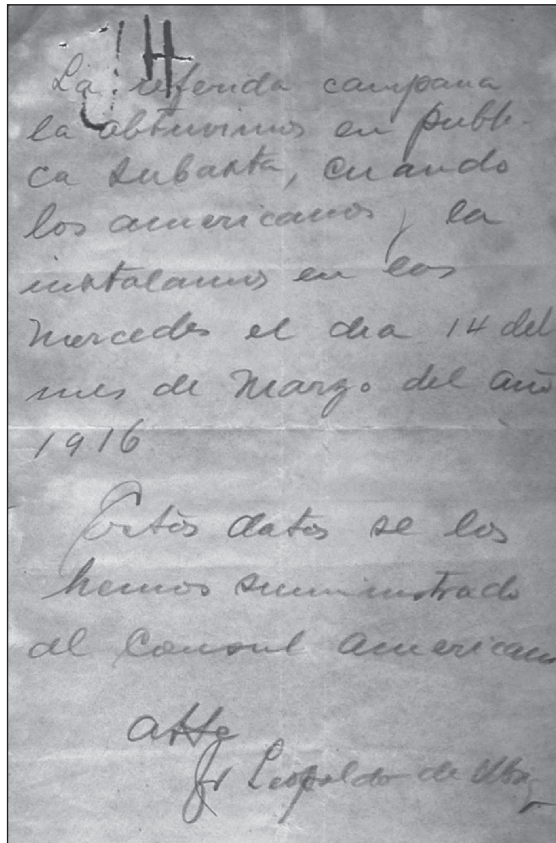 H
La referida campana
la obtuvimos en públi-
ca subasta, cuando
los americanos, la
instalamos en las
Mercedes el dia 14 del
mes de Marzo del año
1916
Estos datos se los
hemos suministrado
al Consul americano
Atte
Fr Leopoldo de